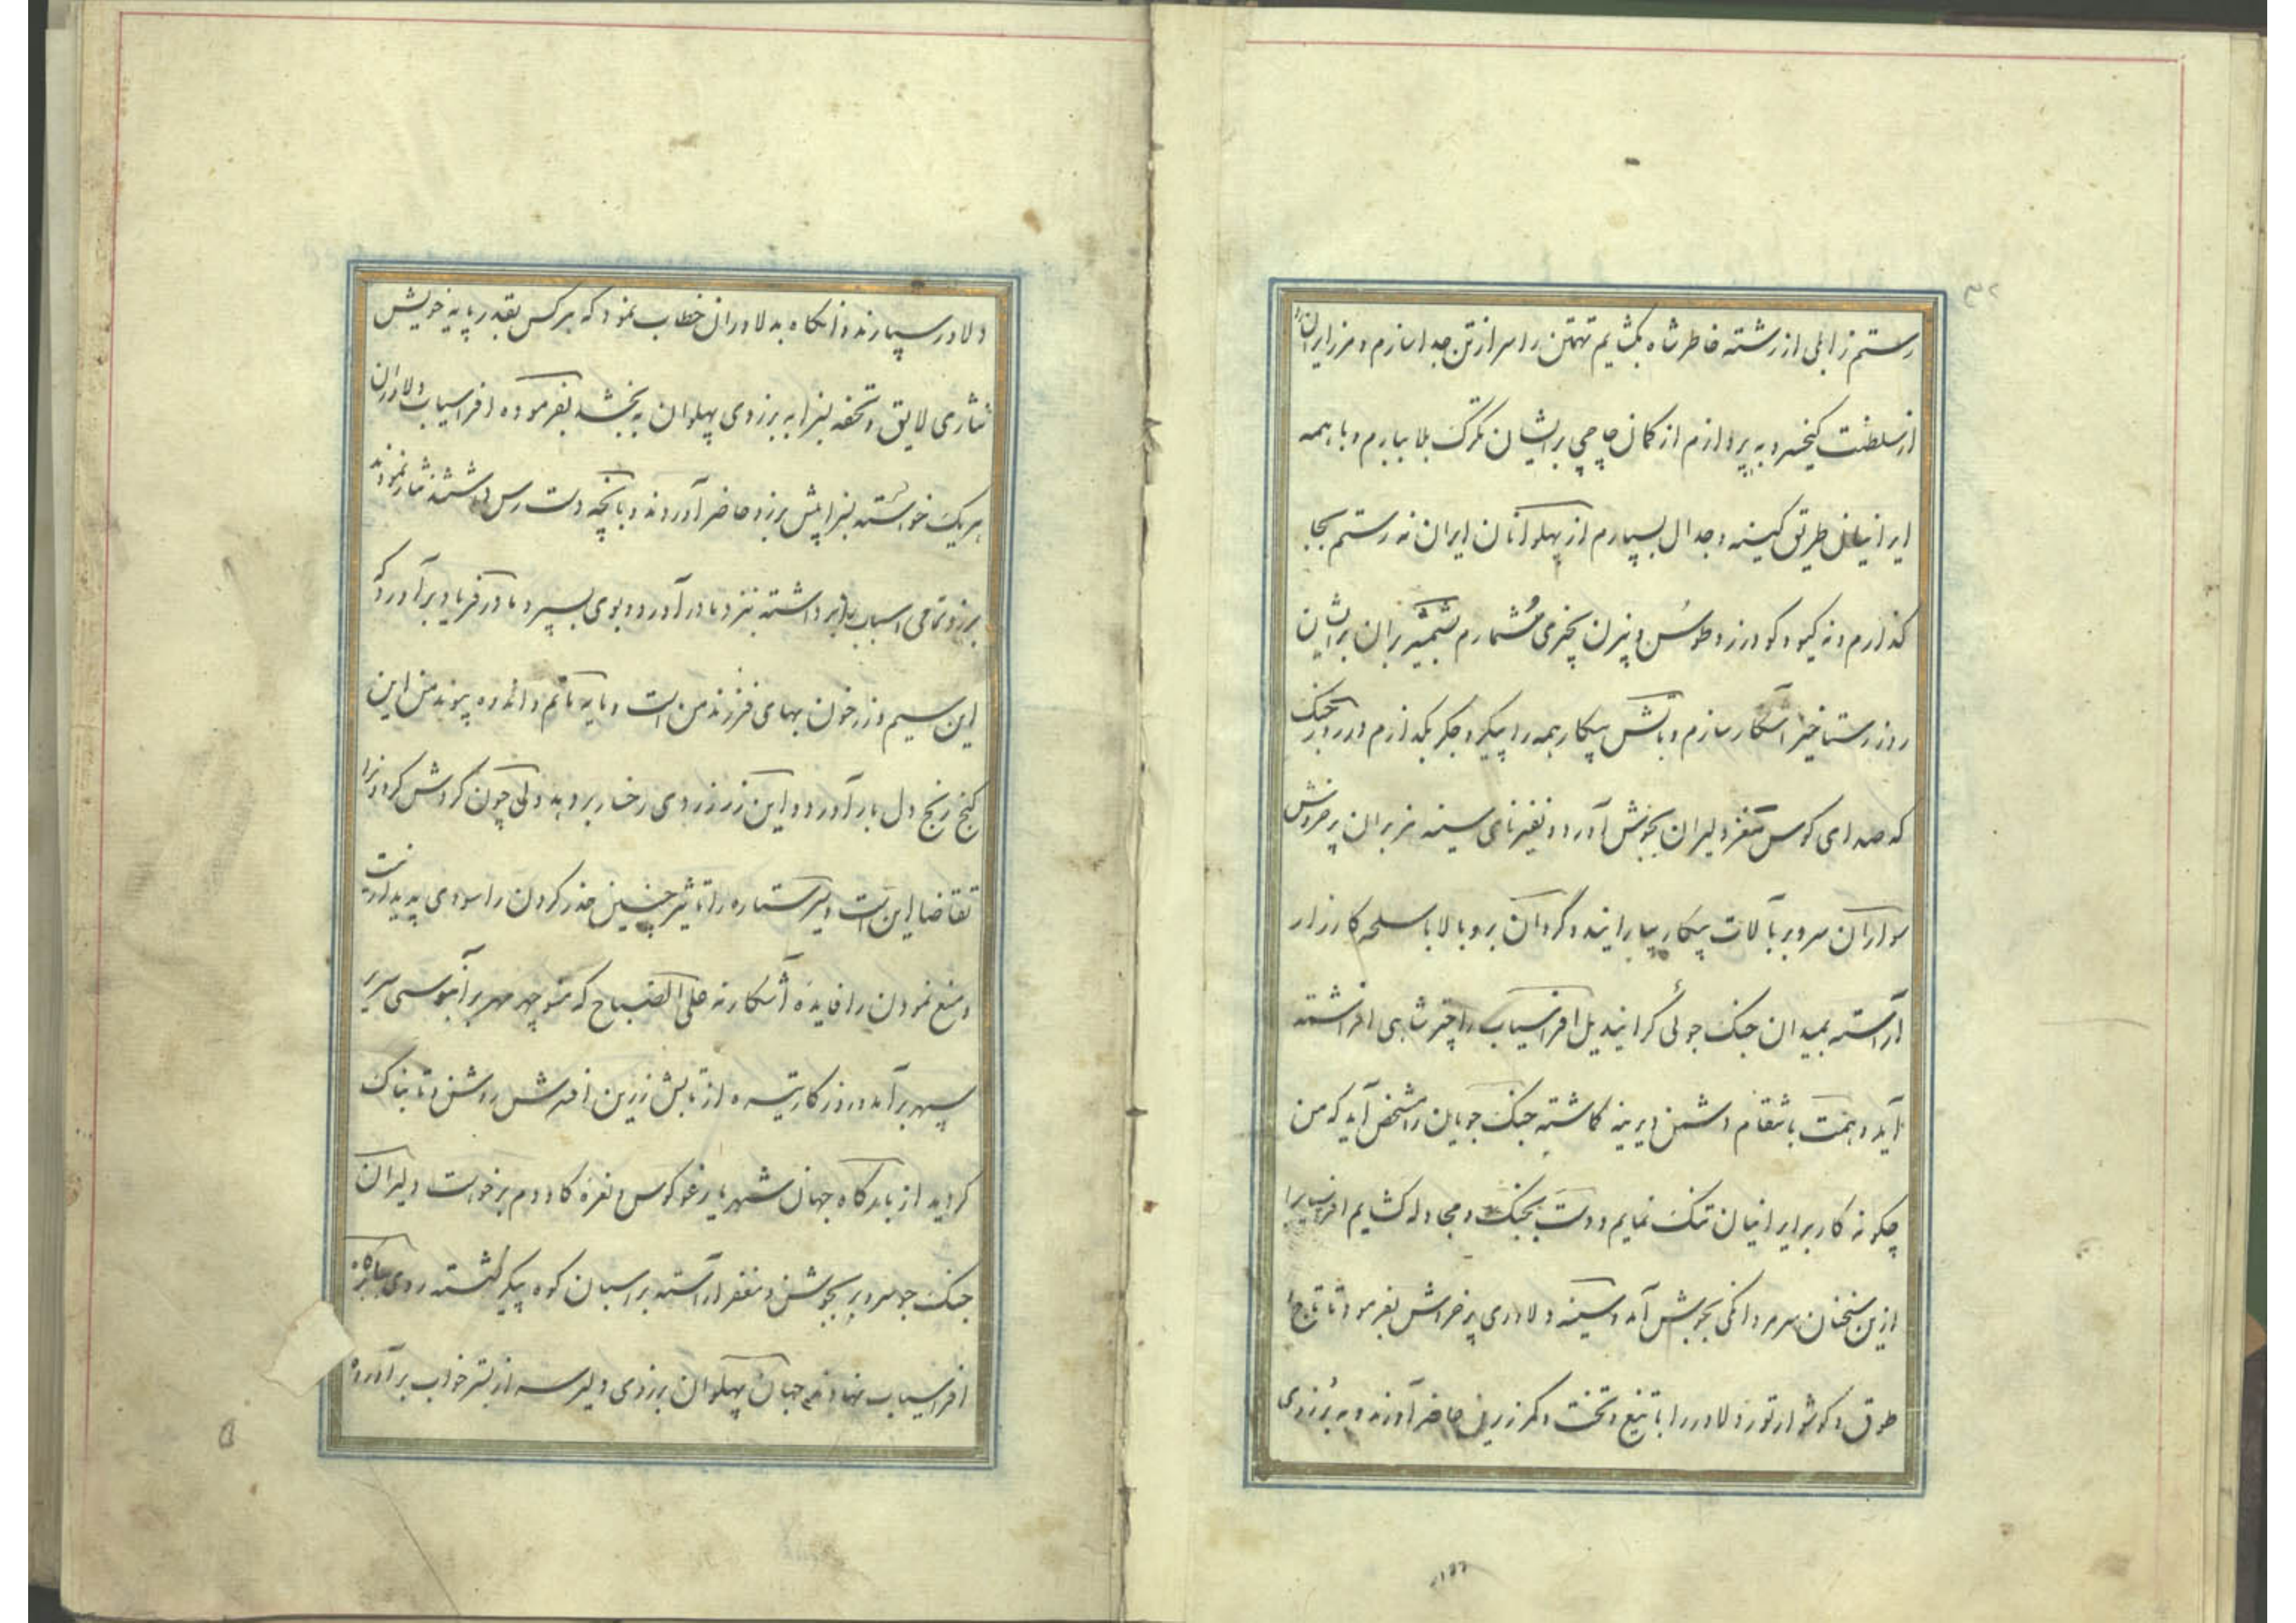 ۳۲
رستم زابلی از رشته خاطر شاه بگشایم تهمتن را سر از تن جدا سازم و مرز ایران را
از سلطنت کیخسرو به پردازم از کمان چاچی بر ایشان تگرگ بلا ببارم و با همه
ایرانیان طریق کینه و جدال بسپارم از پهلوانان ایران نه رستم بجا
گذارم و نه گیو و گودرز و طوس و بیژن بچیزی شمارم بشمشیر بران بر ایشان
روز رستاخیز آشکار سازم و بآتش پیکار همه را پیکر و جگر بگدازم در روز جنگ
که صدای کوس مغز دلیران بجوش آورد و نفیر نای سینه هزبران پر خروش
سواران سر و بر بآلات پیکار بیارایند و گردان بر و بالا باسلحه کارزار
آراسته بمیدان جنگ جوئی گرایند یل افراسیاب را چتر شاهی افراشته
آید و همت بانتقام دشمن دیرینه گماشته جنگ جویان را مشخص آید که من
چگونه کار بر ایرانیان تنگ نمایم و دست بجنگ و مجادله گشایم افراسیاب را
ازین سخنان سر مردانگی بجوش آمد و سینه دلاوری پر خروش بفرمود تا تاج و
طوق و گوشوار تور دلاور را با تیغ و تخت و کمر زرین حاضر آورند و به برزوی
دلاور سپارند و آنگاه بدلاوران خطاب نمود که هر کس بقدر پایه خویش
نثاری لایق و تحفه بسزا به برزوی پهلوان به بخشد بفرموده افراسیاب دلاوران
هر یک خواسته بسزا پیش برزو حاضر آوردند و بآنچه دست رس داشتند نثار نمودند
برزو تمامی اسباب را برداشته بنزد مادر آورد و بوی بسپرد مادر فریاد برآورد که
این سیم و زر خون بهای فرزند من است و مایه ماتم و اندوه پیوند من این
گنج رنج دل بار آورد و این زر زردی رخسار بر دهد ولی چون گردش گردون را
تقاضا این است و سیر ستاره را تاثیر چنین حذر کردن را سودی پدیدار نیست
و منع نمودن را فایده آشکار نه علی الصباح که منوچهر مهر بر آبنوسی سریر
سپهر برآمد و روزگار تیره از تابش زرین افسرش روشن و تابناک
گردید از بارگاه جهان شهریار غو کوس و نعره گاودم برخواست دلیران
جنگ جو سر و بر بجوشن و مغفر آراسته بر اسبان کوه پیکر نشسته روی ببارگاه
افراسیاب نهادند جهان پهلوان برزوی دلیر سر از بستر خواب برآورده